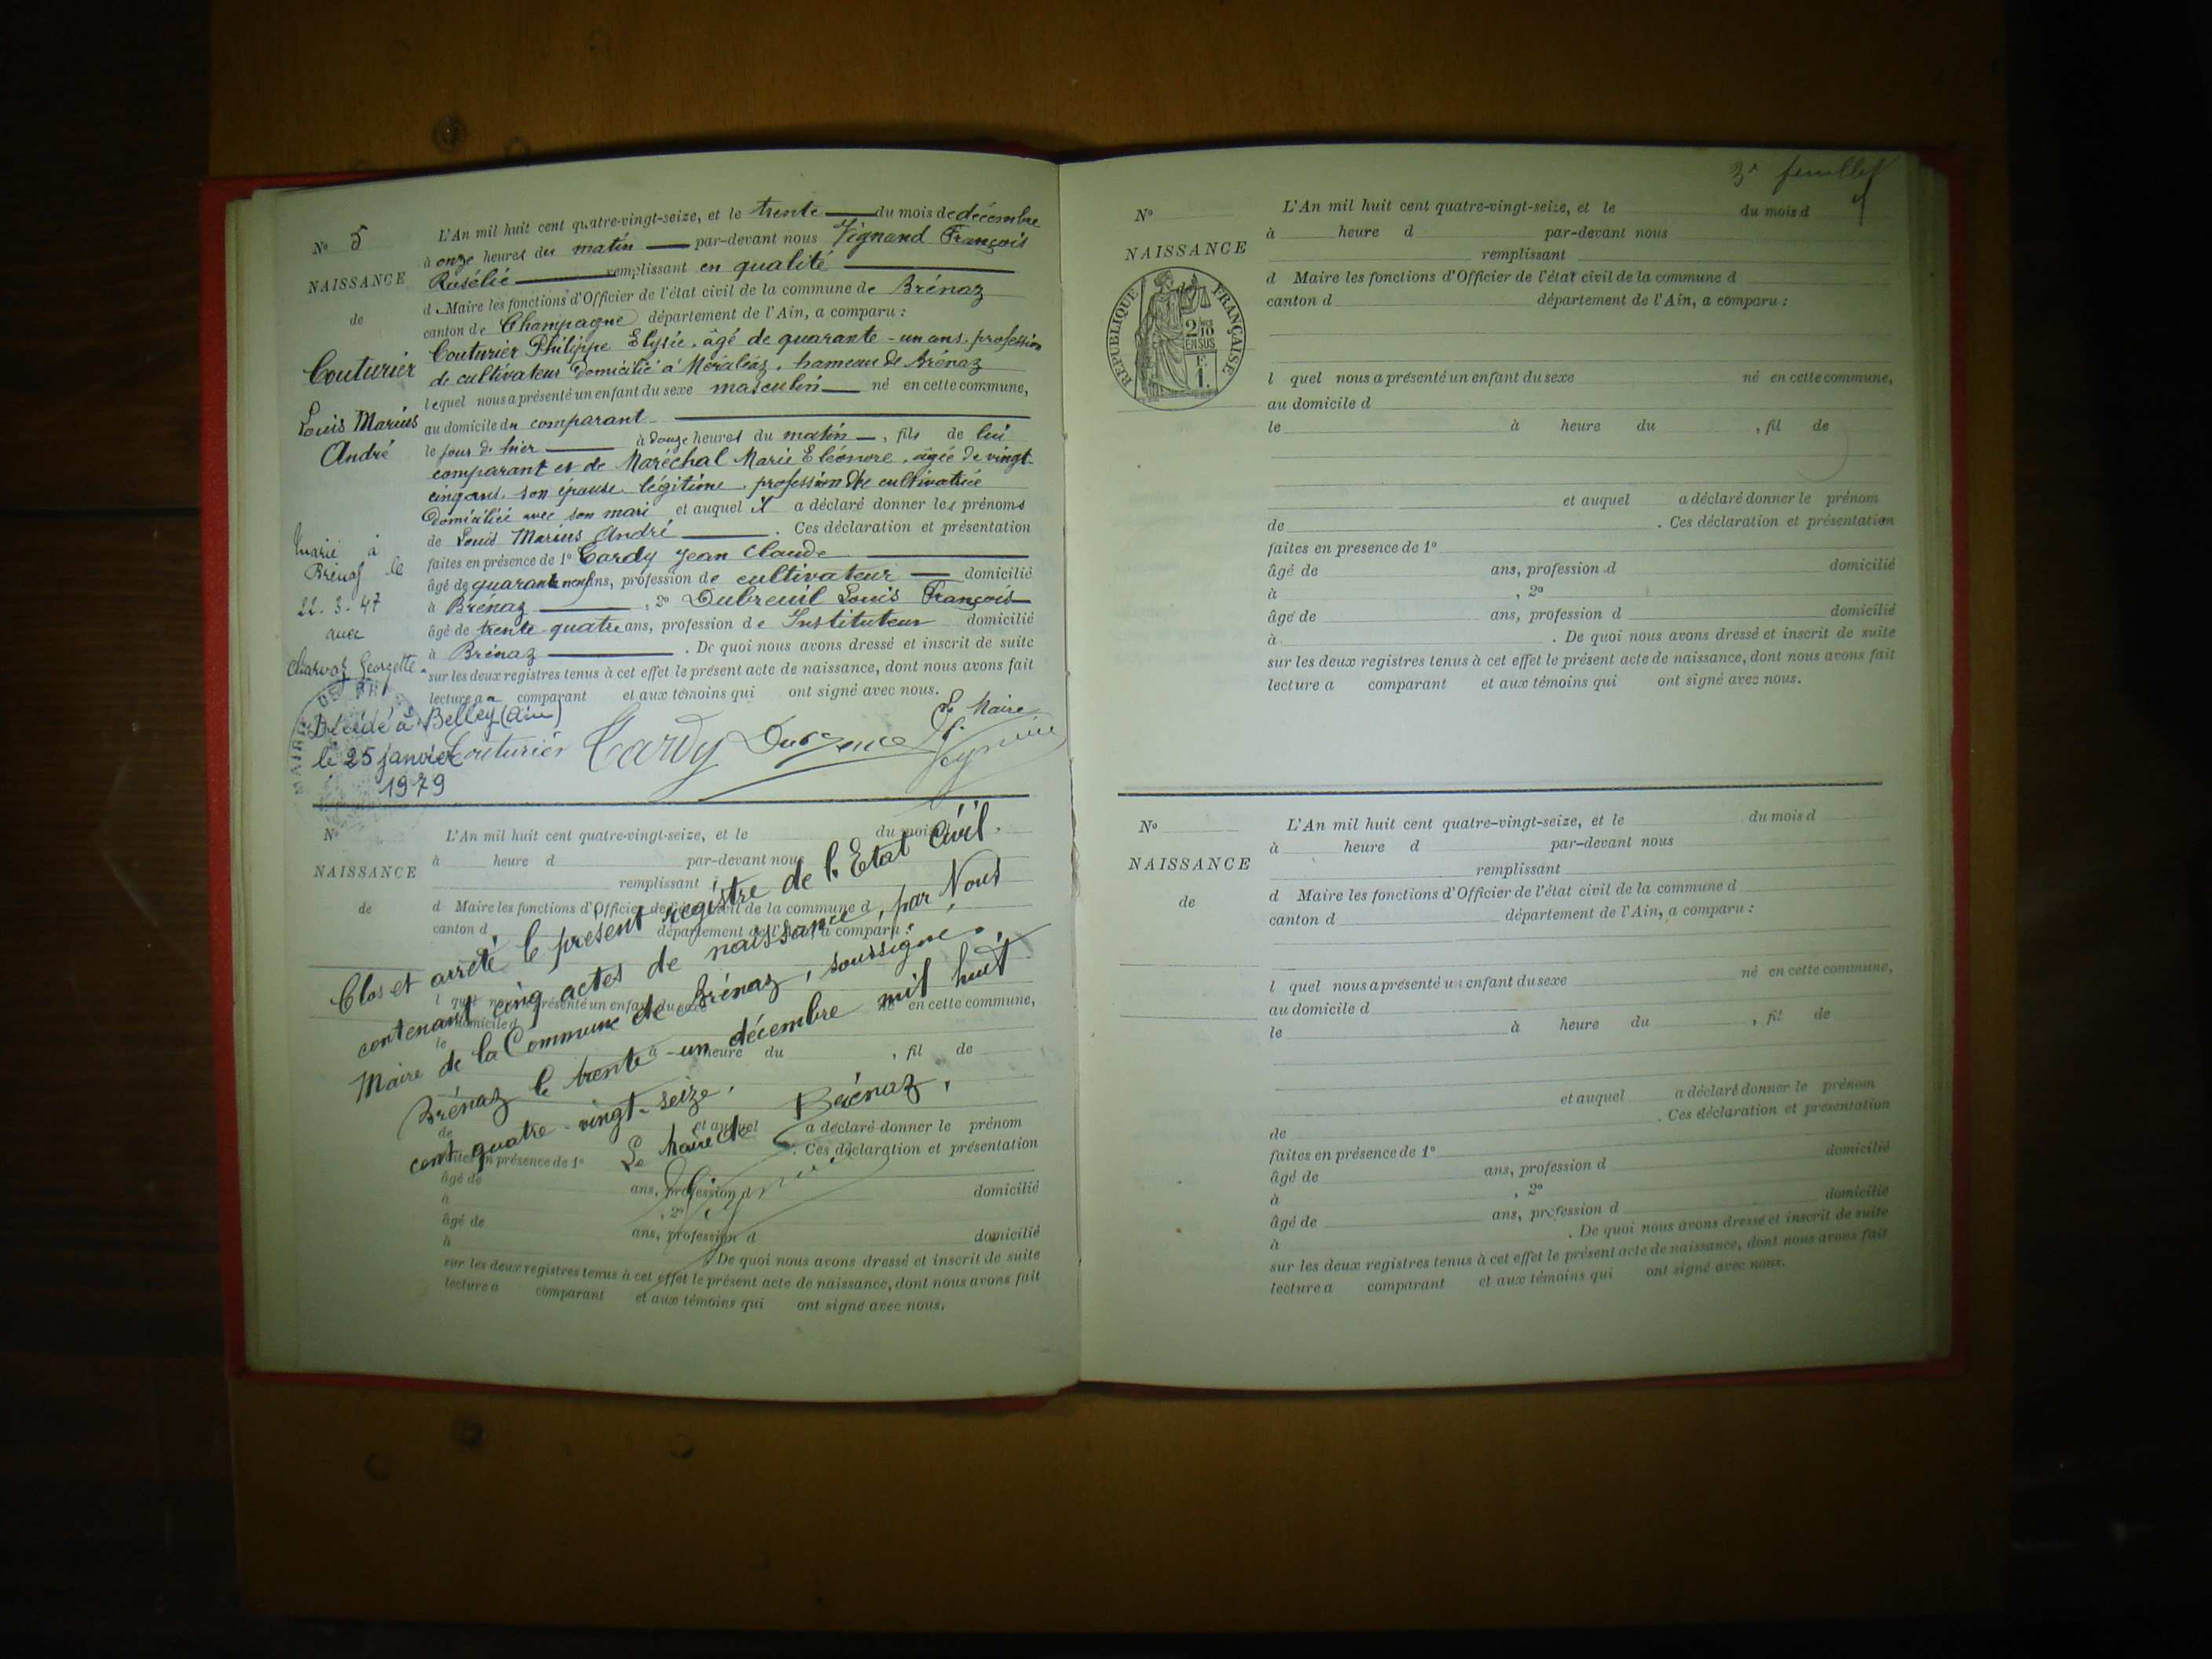 N° 5
NAISSANCE
de
Couturier
Louis Marius
André
L'An mil huit cent quatre-vingt-seize, et le trente du mois de décembre
à onze heures du matin par-devant nous Vignand François
Rosélie remplissant en qualité
d Maire les fonctions d'Officier de l'état civil de la commune de Brénaz
canton de Champagne département de l'Ain, a comparu :
Couturier Philippe Elysée, âgé de quarante-un ans, profession
de cultivateur domicilié à Méraléaz, hameau de Brénaz
lequel nous a présenté un enfant du sexe masculin né en cette commune,
au domicile du comparant
le jour de hier à douze heures du matin, fils de lui
comparant et de Maréchal Marie Eléonore, âgée de vingt-
cinq ans, son épouse légitime, profession de cultivatrice
domiciliée avec son mari et auquel il a déclaré donner les prénoms
de Louis Marius André. Ces déclaration et présentation
faites en présence de 1° Cardy Jean Claude
âgé de quarante neuf ans, profession de cultivateur domicilié
à Brénaz, 2° Dubreuil Louis François
âgé de trente-quatre ans, profession de Instituteur domicilié
à Brénaz. De quoi nous avons dressé et inscrit de suite
sur les deux registres tenus à cet effet le présent acte de naissance, dont nous avons fait
lecture au comparant et aux témoins qui ont signé avec nous.
Le Maire
Couturier Cardy
Marié à
Brénaz le
22-3-47
avec
Charvoz Georgette
Décédé à Belley (Ain)
le 25 janvier
1979
N°
NAISSANCE
de
L'An mil huit cent quatre-vingt-seize, et le du mois d
à heure d par-devant nous
remplissant
d Maire les fonctions d'Officier de l'état civil de la commune d
canton d département de l'Ain, a comparu :
l quel nous a présenté un enfant du sexe né en cette commune,
au domicile d
le à heure du , fil de
et auquel a déclaré donner le prénom
de . Ces déclaration et présentation
faites en présence de 1°
âgé de ans, profession d domicilié
à , 2°
âgé de ans, profession d domicilié
à . De quoi nous avons dressé et inscrit de suite
sur les deux registres tenus à cet effet le présent acte de naissance, dont nous avons fait
lecture a comparant et aux témoins qui ont signé avec nous.
Clos et arrêté le présent registre de l'Etat Civil.
contenant cinq actes de naissance, par Nous
Maire de la Commune de Brénaz, soussigné.
Brénaz le trente-un décembre mil huit
cent quatre-vingt-seize.
Le Maire de Brénaz,
3e feuillet
N°
NAISSANCE
de
RÉPUBLIQUE FRANÇAISE
2/10 EN SUS
F. 1.
L'An mil huit cent quatre-vingt-seize, et le du mois d
à heure d par-devant nous
remplissant
d Maire les fonctions d'Officier de l'état civil de la commune d
canton d département de l'Ain, a comparu :
l quel nous a présenté un enfant du sexe né en cette commune,
au domicile d
le à heure du , fil de
et auquel a déclaré donner le prénom
de . Ces déclaration et présentation
faites en presence de 1°
âgé de ans, profession d domicilié
à , 2°
âgé de ans, profession d domicilié
à . De quoi nous avons dressé et inscrit de suite
sur les deux registres tenus à cet effet le présent acte de naissance, dont nous avons fait
lecture a comparant et aux témoins qui ont signé avec nous.
N°
NAISSANCE
de
L'An mil huit cent quatre-vingt-seize, et le du mois d
à heure d par-devant nous
remplissant
d Maire les fonctions d'Officier de l'état civil de la commune d
canton d département de l'Ain, a comparu :
l quel nous a présenté un enfant du sexe né en cette commune,
au domicile d
le à heure du , fil de
et auquel a déclaré donner le prénom
de . Ces déclaration et présentation
faites en présence de 1°
âgé de ans, profession d domicilié
à , 2°
âgé de ans, profession d domicilié
à . De quoi nous avons dressé et inscrit de suite
sur les deux registres tenus à cet effet le présent acte de naissance, dont nous avons fait
lecture a comparant et aux témoins qui ont signé avec nous.